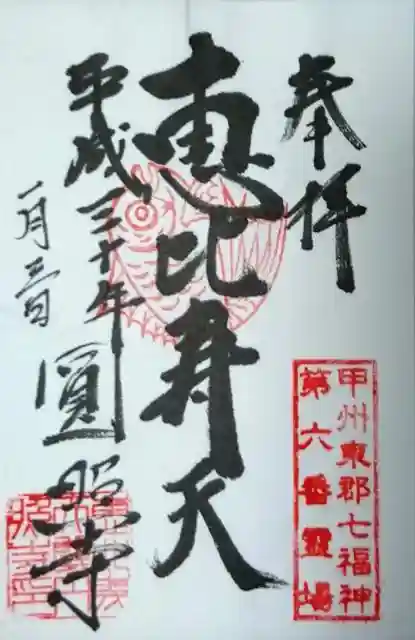 奉拝
甲州東郡七福神
第六番霊場
恵比寿天
平成三十年
一月三日
圓照寺